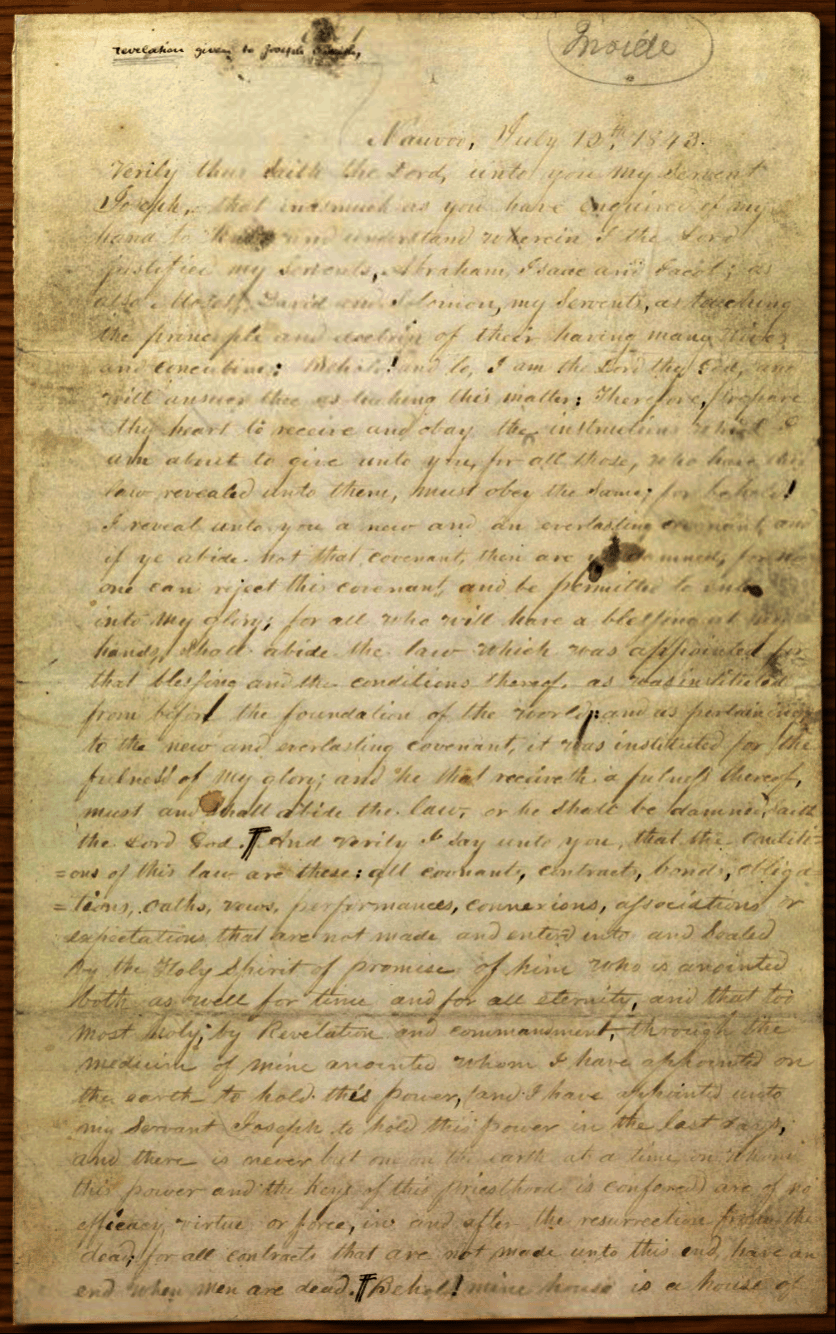 revelation given to Joseph Smith,
Inside
Nauvoo, July 12th, 1843.
Verily thus saith the Lord, unto you my Servent
Joseph, that inasmuch as you have enquired of my
hand to know and understand wherein I the Lord
justified my Servents, Abraham, Isaac and Jacob; as
also Moses, David and Solomon, my Servents, as touching
the principle and doctrin of their having many Wives
and concubins: Behold! and lo, I am the Lord thy God, and
will answer thee as touching this matter: Therefore, prepare
thy heart to receive and obey the instructions which I
am about to give unto you, for all those, who have this
law revealed unto them, must obey the same; for behold!
I reveal unto you a new and an everlasting covenant, and
if ye abide not that covenant, then are ye damned; for no
one can reject this covenant, and be permitted to enter
into my glory; for all who will have a blessing at my
hands, shall abide the law which was appointed for
that blessing and the conditions thereof, as was instituted
from before the foundation of the world: and as pertaining
to the new and everlasting covenant, it was instituted for the
fulness of my glory; and he that receiveth a fulness thereof,
must and shall abide the law, or he shall be damned, saith
the Lord God. ¶ And verily I say unto you, that the conditi-
=ons of this law are these: all covenants, contracts, bonds, obliga-
=tions, oaths, vows, performances, connexions, associations or
expectations that are not made and entered into and Sealed
by the Holy Spirit of promise of him who is anointed
both as well for time and for all eternity, and that too
most holy, by Revelation and commandment, through the
medium of mine anointed whom I have appointed on
the earth to hold this power, (and I have appointed unto
my Servant Joseph to hold this power in the last days,
and there is never but one on the earth at a time on whom
this power and the keys of this priesthood is confered) are of no
efficacy, virtue or force, in and after the resurrection from the
dead; for all contracts that are not made unto this end, have an
end when men are dead. ¶ Behold! mine house is a house of